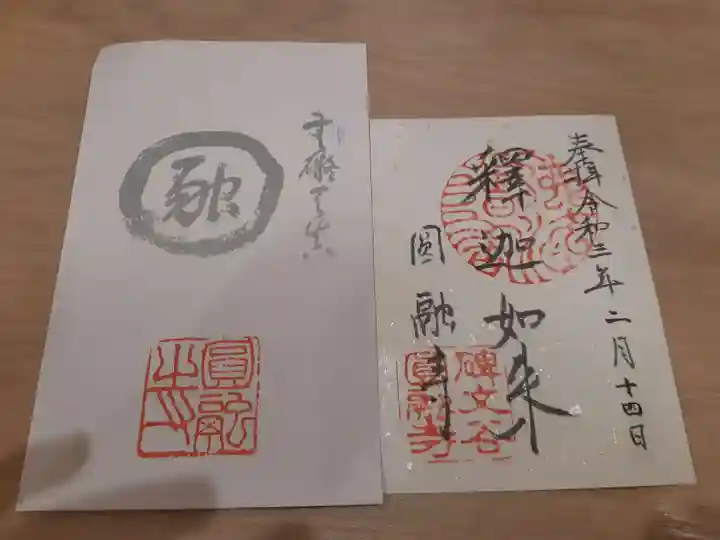 融
圓融
之印
奉拜 令和三年二月十四日
釋迦如来
圓融寺
碑文谷
圓融寺